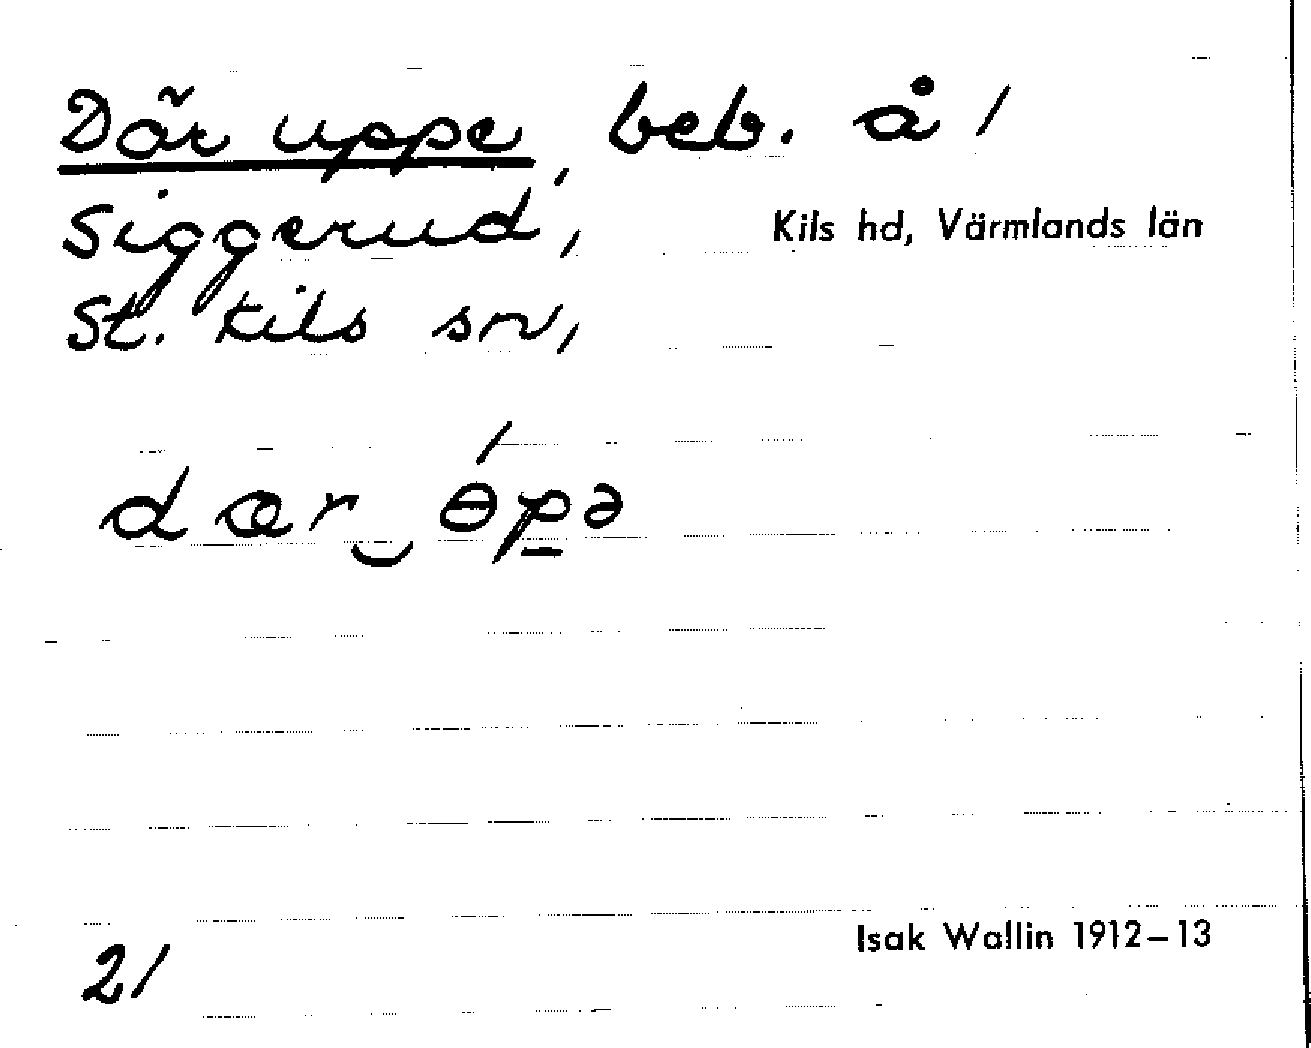 Där uppe, beb. å 1
Siggerud,
Kils hd, Värmlands län
St. Kils sn,
dær‿ɵ́p̠ə
Isak Wallin 1912–13
21